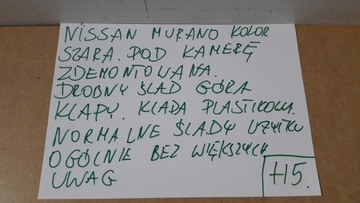 NISSAN MURANO KOLOR
SZARA. POD KAMERĘ
ZDEMONTOWANA.
DROBNY ŚLAD GÓRA
KLAPY. KLAPA PLASTIKOWA
NORMALNE ŚLADY UŻYTKU
OGÓLNIE BEZ WIĘKSZYCH
UWAG
H5.